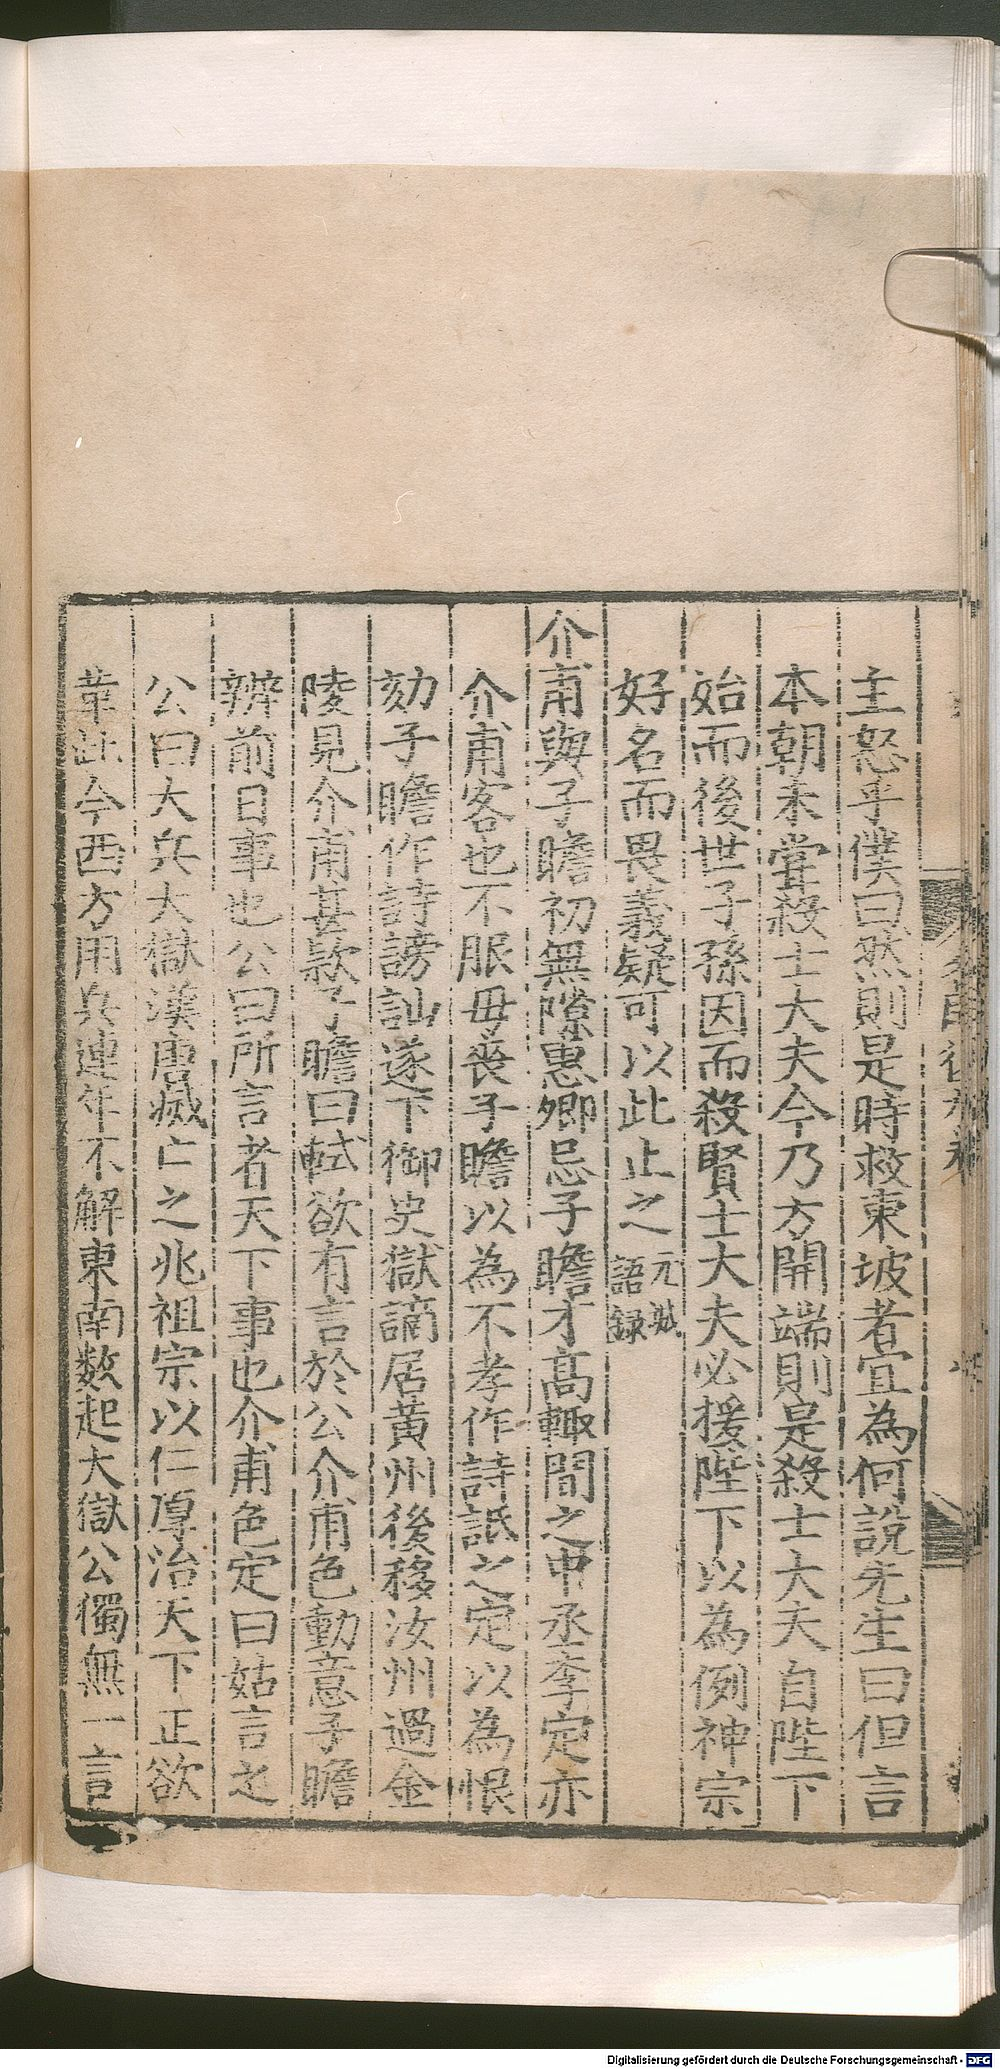 主怒乎僕曰然則是時救東坡者宜為何說先生曰但言
本朝未嘗殺士大夫今乃方開端則是殺士大夫自陛下
始而後世子孫因而殺賢士大夫必援陛下以為例神宗
好名而畏義疑可以此止之元城語録
介甫與子瞻初無隙惠卿忌子瞻才高輙間之中丞李定亦
介甫客也不服母喪子瞻以為不孝作詩詆之定以為恨
劾子瞻作詩謗訕遂下御史獄謫居黃州後移汝州過金
陵見介甫甚款子瞻曰軾欲有言於公介甫色動意子瞻
辨前日事也公曰所言者天下事也介甫色定曰姑言之
公曰大兵大獄漢唐滅亡之兆祖宗以仁厚治天下正欲
革此今西方用兵連年不解東南数起大獄公獨無一言
Digitalisierung gefördert durch die Deutsche Forschungsgemeinschaft - DFG